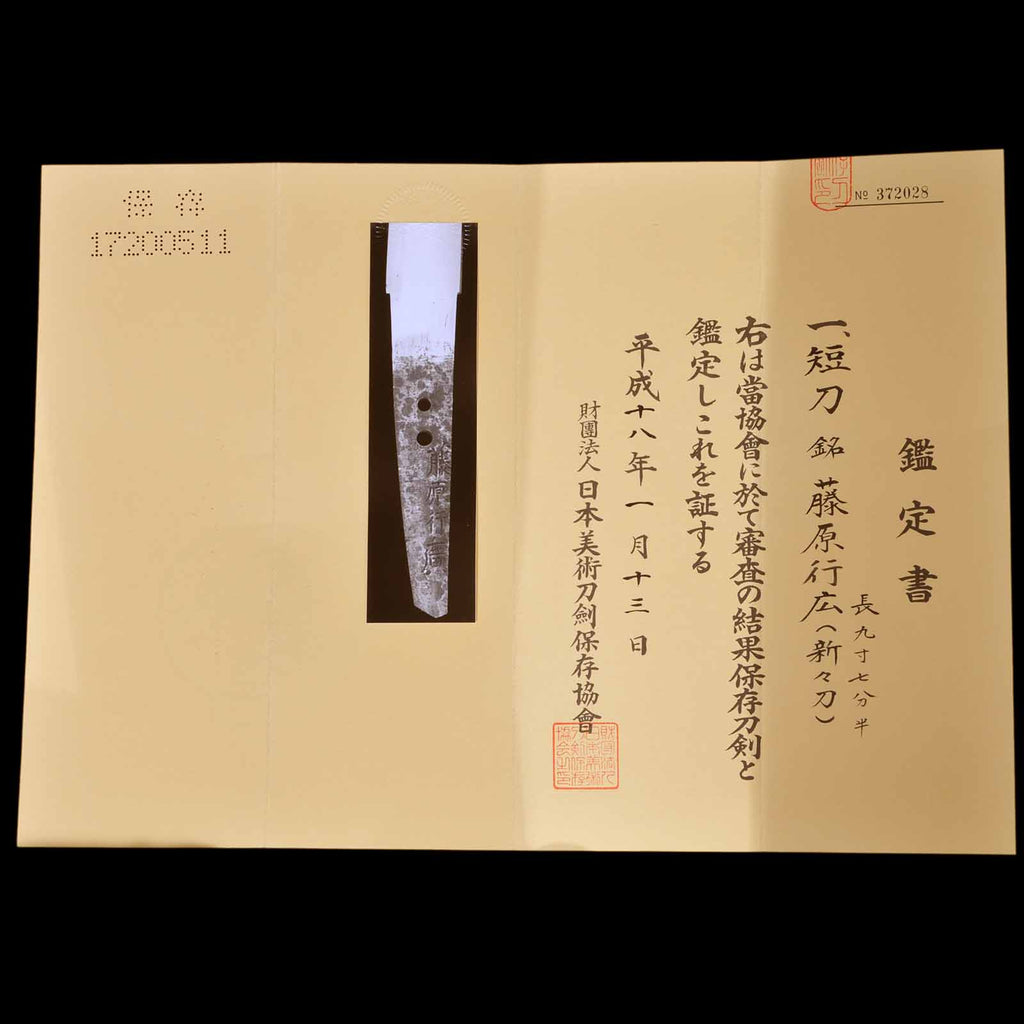 鑑定書
No 372028
一、短刀 銘 藤原行広(新々刀)
長九寸七分半
右は當協會に於て審査の結果保存刀剣と
鑑定しこれを証する
平成十八年一月十三日
財團法人日本美術刀劍保存協會
藤原行広
保存
17200511